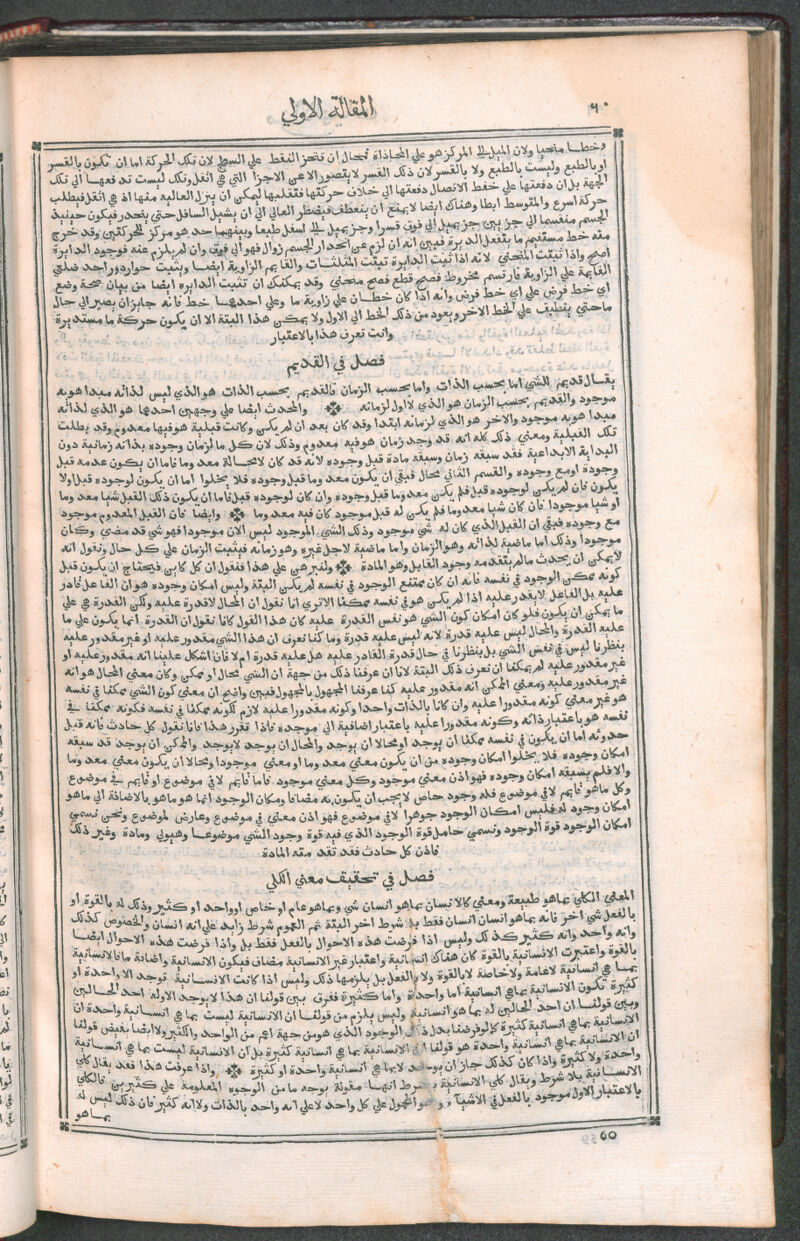 المقالة الاولي
٦٠
وخطا منحنيا ولان الميل الي المركز هو علي المحاذاة محال ان تنحز النقط علي السطح لان تلك الحركة اما ان تكون بالقسر
او بالطبع وليست بالطبع ولا بالقسر لان ذلك القسر لا يتصور الا عن الاجزا التي هي اثقل وتلك ليست تدفعها الي تلك
الجهة بل ان دفعتها علي حفظ الاتصال دفعتها الي خلاف حركتها فتقلبها ليمكن ان ينزل العاليه منها اذ هي اثقل فيطلب
حركة اسرع والمتوسط ابطا وهناك ايضا لا يمنع ان ينعطف فيضطر العالي الي ان يشيل السافل حتي ينحدر فيكون حينيذ
الجسم منقسما الي جزيين جز يميل الي فوق قسرا وجز يميل الي اسفل طبعا وبينهما حد هو مركز للحركتين وقد خرج
منه خط مستقيم ما يفعل الدايرة فبين انه ان لزم عن انحدار الجسم زوال فهو الي فوق وان لم يلزم عنه فوجود الدايرة
اصح واذا ثبتت المنحني لانه اذا ثبت الدايرة تثبت المثلثات والقايم الزاوية ايضا ويثبت جواز دور احد ضلعي
القايمة علي الزاوية فارتسم مخروط فصح قطع فصح منحني وقد يمكنك ان تثبت الدايره ايضا من بيان صحة وضع
اي خط فرض علي اي خط فرض وانه اذا كان خطان علي زاوية ما وعلي احدهما خط فانه جايز ان يصير الي حال
ماحتي ينطبف علي الخط الاخر ويعود من ذلك الخط الي الاول ولا يمكن هذا البتة الا ان يكون حركة ما مستديرة
وانت تعرف هذا بالاعتبار
فصل في القديم
يقال قديم للشي اما بحسب الذات واما بحسب الزمان فالقديم بحسب الذات هو الذي ليس لذاته مبدا هو به
موجود والقديم بحسب الزمان هو الذي لا اول لزمانه والمحدث ايضا علي وجهين احدهما هو الذي لذاته
مبدا هو به موجود والاخر هو الذي لزمانه ابتدا وقد كان بعد ان لم يكن وكانت قبلية هو فيها معدوم وقد بطلت
تلك القبلية ومعني ذلك كله انه قد وجد زمان هو فيه معدوم وذلك لان كل ما لزمان وجوده بداية زمانية دون
البداية الابداعية فقد سبقه زمان وسبقه مادة قبل وجوده لانه قد كان لا محالة معدوما فاما ان يكون عدمه قبل
وجوده او مع وجوده والقسم الثاني محال فبقي ان يكون معدوما قبل وجوده فلا يخلوا اما ان يكون لوجوده قبل او لا
يكون فان لم يكن لوجوده قبل فلم يكن معدوما قبل وجوده وان كان لوجوده قبل فاما ان يكون ذلك القبل شيا معدوما
او شيا موجودا فان كان شيا معدوما فلم يكن له قبل موجود كان فيه معدوما وايضا فان القبل المعدوم موجود
مع وجوده فبقي ان القبل الذي كان له شي موجود وذلك الشي الموجود ليس الان موجودا فهو شي قد مضي وكان
موجودا وذلك اما ماضية لذاته وهو الزمان واما ماضية لاجل غيره وهو زمانه فيثبت الزمان علي كل حال ونقول انه
لا يمكن ان يحدث ما لم يتقدمه وجود القابل وهو المادة ولنبرهن علي هذا فنقول ان كل كاين فيحتاج ان يكون قبل
كونه ممكن الوجود في نفسه فانه ان كان ممتنع الوجود في نفسه لم يكن البتة وليس امكان وجوده هو ان الفاعل قادر
عليه بل الفاعل لا يقدر عليه اذا لم يكن هو في نفسه ممكنا الاتري انا نقول ان المحال لا قدرة عليه ولكن القدرة هي علي
ما يمكن ان يكون فلو كان امكان كون الشي هو نفس القدرة عليه كان هذا القول كانا نقول ان القدرة انما يكون علي ما
عليه القدرة والمحال ليس عليه قدرة لانه ليس عليه قدرة وما كنا نعرف ان هذا الشي مقدور عليه او غير مقدور عليه
بنظرنا ليس في نفس الشي بل بنظرنا في حال قدرة القادر عليه هل عليه قدرة ام لا فان اشكل علينا انه مقدور عليه او
غير مقدور عليه لم يمكننا ان نعرف ذلك البتة لانا ان عرفنا ذلك من جهة ان الشي محال او ممكن وكان معني المحال هو انه
غير مقدور عليه ومعني الممكن انه مقدور عليه كنا عرفنا المجهول بالمجهول فبين واضح ان معني كون الشي ممكنا في نفسه
هو غير معني كونه مقدورا عليه وان كانا بالذات واحدا وكونه مقدورا عليه لازم لكونه ممكنا في نفسه فكونه ممكنا في
نفسه هو باعتبار ذاته وكونه مقدورا عليه باعتبار اضافية الي موجده فاذا تقرر هذا فانا نقول كل حادث فانه قبل
حدوثه اما ان يكون في نفسه ممكنا ان يوجد او محالا ان يوجد والمحال ان يوجد لا يوجد والممكن ان يوجد قد سبقه
امكان وجوده فلا يخلوا امكان وجوده من ان يكون معني معدوما او معني موجودا ومحالا ان يكون معني معدوما
والا فلم يسبقه امكان وجوده فهو اذن معني موجود وكل معني موجود فاما قايم لا في موضوع او قايم في موضوع
وكل ما هو قايم لا في موضوع فله وجود خاص لا يجب ان يكون به مضافا وامكان الوجود انما هو ما هو بالاضافة الي ما هو
امكان وجود له فليس امكان الوجود جوهرا لا في موضوع فهو اذن معني في موضوع وعارض لموضوع ونحن نسمي
امكان الوجود قوة الوجود ونسمي حامل قوة الوجود الذي فيه قوة وجود الشي موضوعا وهيولي ومادة وغير ذلك
فاذن كل حادث فقد تقدمته المادة
فصل في تحقيف معني الكلي
المعني الكلي بما هو طبيعة ومعني كالانسان بما هو انسان شي وبما هو عام او خاص او واحد او كثير وذلك له بالقوة او
بالفعل شي اخر فانه بما هو انسان انسان فقط بلا شرط اخر البتة ثم العموم شرط زايد علي انه انسان والخصوص كذلك
وانه واحد وانه كثير كذلك وليس اذا فرضت هذه الاحوال بالفعل فقط بل واذا فرضت هذه الاحوال ايضا
بالقوة واعتبرت الانسانية بالقوة كان هناك انسانية واعتبار غير الانسانية مضاف فيكون الانسانية واضافة ما فالانسانية
بما هي انسانية لا عامة ولا خاصة لا بالقوة ولا بالفعل بل يلزمها ذلك وليس اذا كانت الانسانية توجد الا واحدة او
كثيرة تكون الانسانية بما هي انسانية اما واحدة واما كثيرة ففرق بين قولنا ان هذا لا يوجد الا وله احد الحالين
وبين قولنا ان احد الحالين له بما هو انسانية وليس يلزم من قولنا ان الانسانية ليست بما هي انسانية واحدة ان
الانسانية بما هي انسانية كثيرة كما لو فرضنا بدل ذلك الوجود الذي هو من جهة اعم من الواحد والكثير ولا ايضا نقيض قولنا
ان الانسانية بما هي انسانية واحدة هو قولنا ان الانسانية بما هي انسانية كثيرة بل ان الانسانية ليست بما هي انسانية
واحدة ولا كثيرة واذا كان كذلك جاز ان يوجد لا بما هي انسانية واحدة او كثيرة واذا عرفت هذا فقد يقال كلي
الانسانية بلا شرط ويقال كلي الانسانية بشرط انها مقولة بوجه ما من الوجوه المعلومة علي كثيرين فالكلي
بالاعتبار الاول موجود بالفعل في الاشيآء وهو المحمول علي كل واحد لا علي انه واحد بالذات ولا انه كثير فان ذلك ليس له
بما هو
60